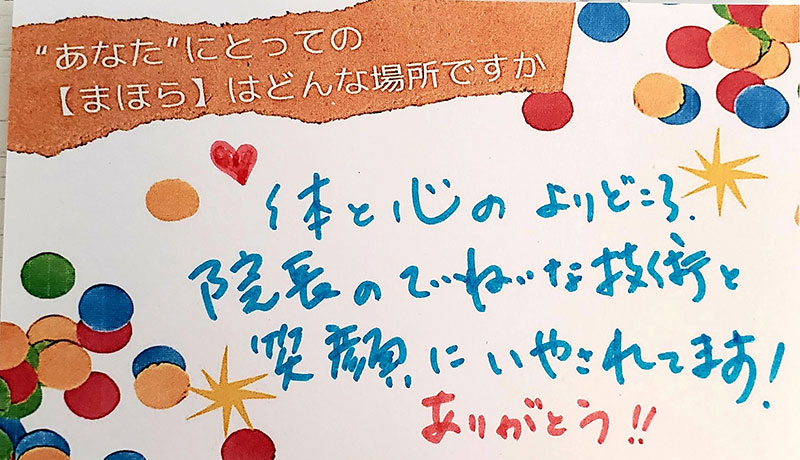 “あなた”にとっての
【まほら】はどんな場所ですか
体と心のよりどころ.
院長のていねいな技術と
笑顔にいやされてます!
ありがとう!!